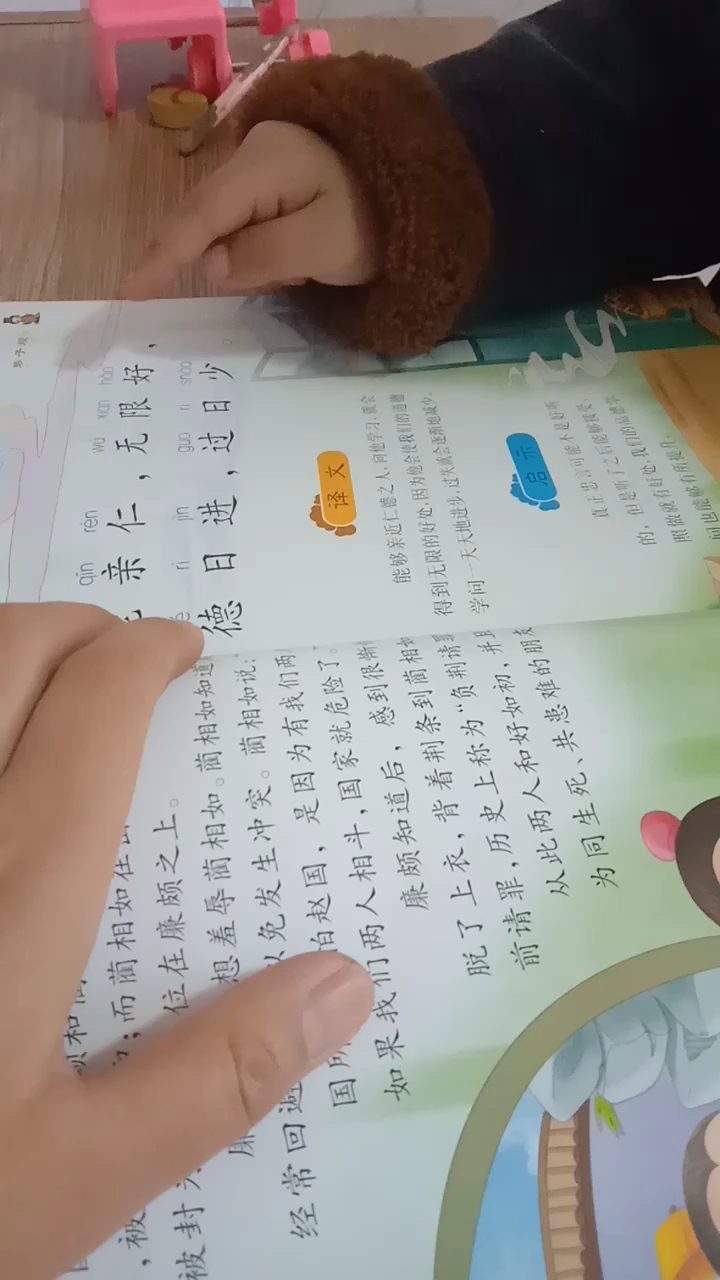 位在廉颇之上。
想羞辱蔺相如。蔺相如知道
以免发生冲突。蔺相如说:
经常回避
怕赵国,是因为有我们两
如果我们两人相斗,国家就危险了。
廉颇知道后,感到很惭
脱了上衣,背着荆条到蔺相如
前请罪,历史上称为“负荆请罪
从此两人和好如初,并且
为同生死、共患难的朋友
弟子规
qīn rén wú xiàn hǎo
亲仁,无限好,
rì jìn guò rì shǎo
德日进,过日少。
译文
能够亲近仁德之人,向他学习,就会
得到无限的好处,因为他会使我们的道德
学问一天天地进步,过失就会逐渐地减少。
启示
真正忠言可能不是好听
的,但是听了之后能够接受、
照做就有好处,我们的品德学
问也能够有所提升。